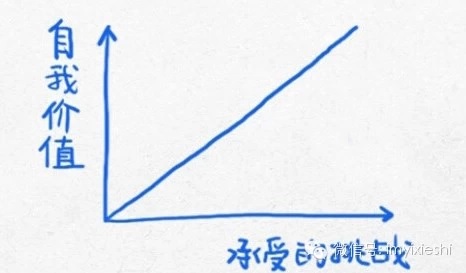 自我价值
承受的挑战
微信号: imyixieshi